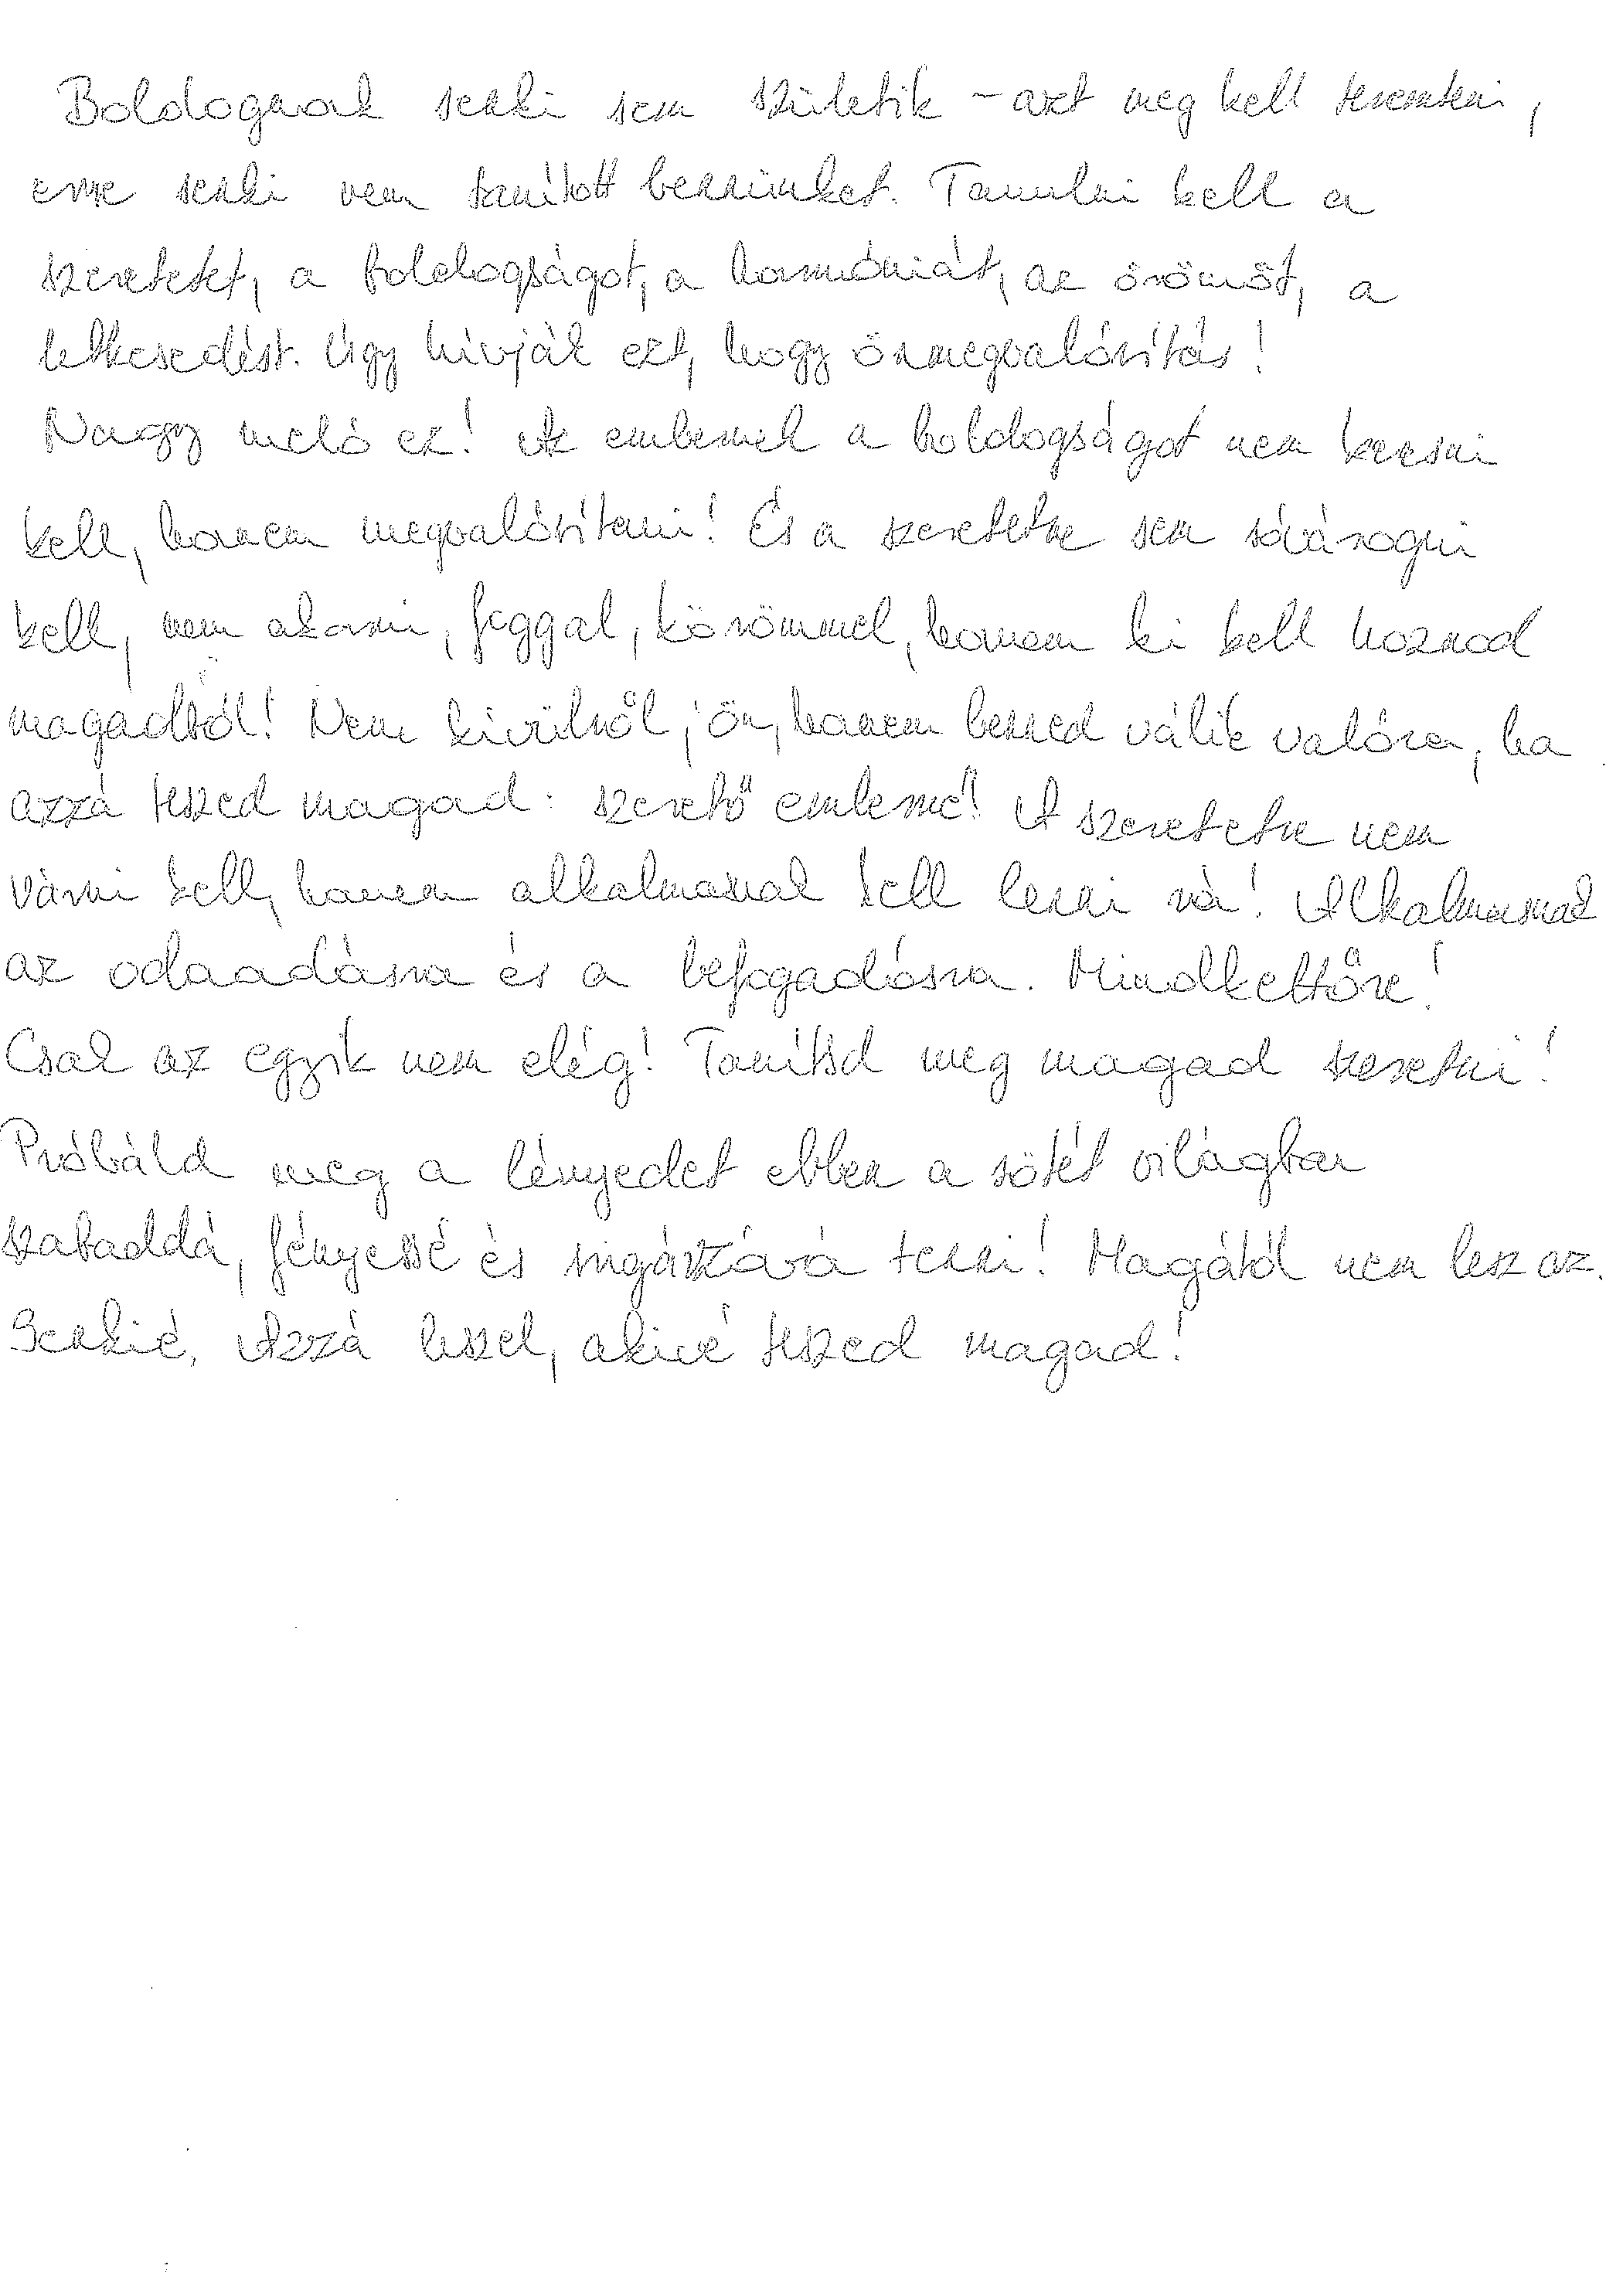 Boldognak senki sem születik - azt meg kell teremteni,
erre senki nem tanított bennünket. Tanulni kell a
szeretetet, a boldogságot, a harmóniát, az örömöt, a
lelkesedést. Úgy hívják ezt, hogy önmegvalósítás!
Nagy meló ez! Az embernek a boldogságot nem keresni
kell, hanem megvalósítani! És a szeretetre sem sóvárogni
kell, nem akarni, foggal, körömmel, hanem ki kell hoznod
magadból! Nem kívülről jön, hanem benned válik valóra, ha
azzá teszed magad: szerető emberré! A szeretetre nem
várni kell, hanem alkalmasnak kell lenni rá! Alkalmasnak
az odaadásra és a befogadásra. Mindkettőre!
Csak az egyik nem elég! Tanítsd meg magad szeretni!
Próbáld meg a lényedet ebben a sötét világban
szabaddá, fényessé és sugárzóvá tenni! Magától nem lesz az.
Senkié. Azzá leszel, akivé teszed magad!